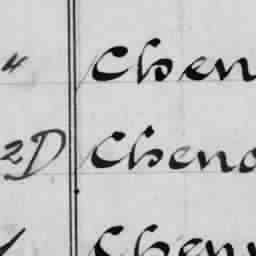 " Chen
2D Cheno
Chen